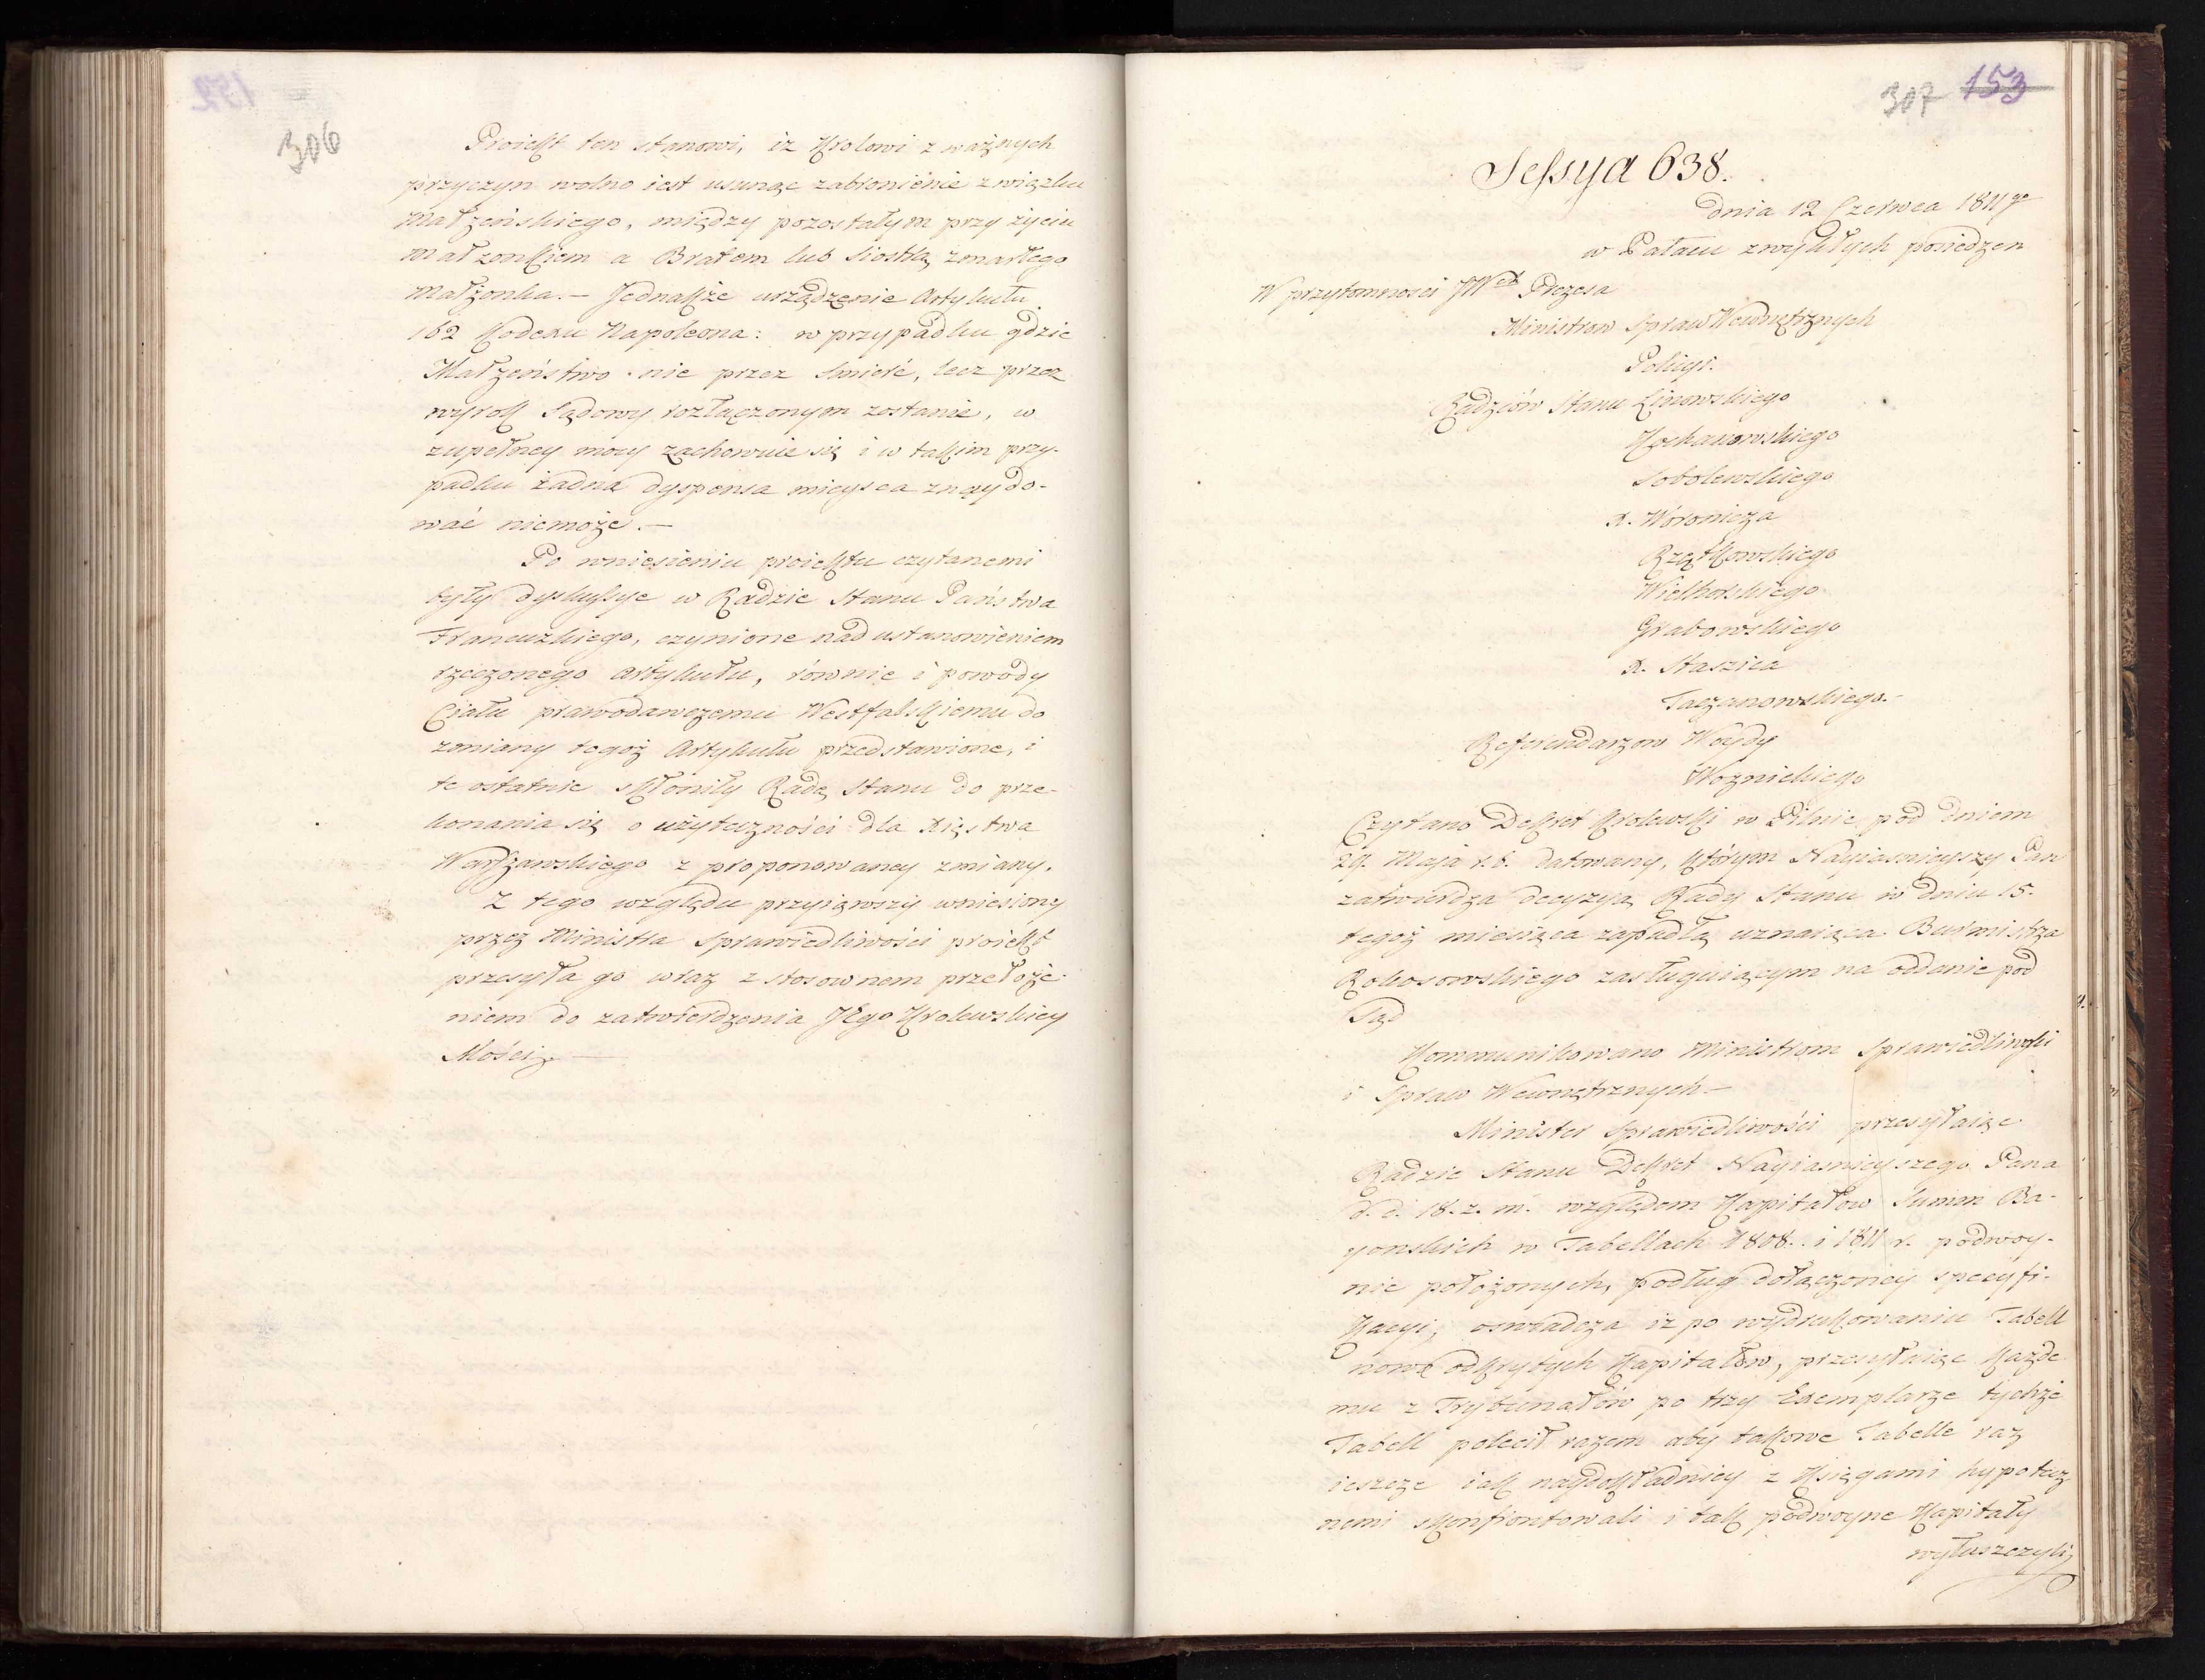 306
Proiekt ten stanowi, iż Krolowi z ważnych
przyczyn wolno iest usunąc zabronienie związku
Małżeńskiego, między pozostałym przy życiu
małzonkiem a Bratem lub Siostrą zmarłego
Małżonka. — Jednakże urządzenie Artykułu
162 Kodexu Napoleona: w przypadku gdzie
Małżeństwo nie przez Smierć, lecz przez
wyrok Sądowy rozłączonym zostanie, w
zupełney mocy zachowuie się i w takim przy-
padku żadna dyspensa mieysca znaydo-
wać niemoże. —
Po wniesieniu proiektu czytanemi
były dyskussye w Radzie Stanu Państwa
Francuzkiego, czynione nad ustanowieniem
rzeczonego artykułu, równie i powody
Ciału prawodawczemu Westfalskiemu do
zmiany tegoż Artykułu przedstawione, i
te ostatnie skłoniły Radę Stanu do prze-
konania się o użyteczności dla Xięstwa
Warszawskiego z proponowaney zmiany.
Z tego względu przyiąwszy wniesiony
przez Ministra Sprawiedliwości proiekt
przesyła go wraz z stosownem przełoże-
niem do zatwierdzenia JEgo Krolewskiey
Mości. —
307 153
Sessya 638.
dnia 12 Czerwca 1811go
w Pałacu zwykłych posiedzen
W przytomnosci JWch Prezesa
Ministrow Spraw Wewnętrznych
Policyi.
Radzców Stanu Linowskiego
Kochanowskiego
Sobolewskiego
X. Woronicza
Rzątkowskiego
Wielhorskiego
Grabowskiego
X. Staszica
Taczanowskiego.-
Referendarzow Woydy
Woznickiego
Czytano Dekret Krolewski w Pilnie pod dniem
29. Maja r. b. datowany, którym Nayiasnieyszy Pan
zatwierdza decyzyą Rady Stanu w dniu 15.
tegoż miesiąca zapadłą uznaiącą Burmistrza
Rokosowskiego zasługuiącym na oddanie pod
Sąd
Kommunikowano Ministrom Sprawiedliwości
i Spraw Wewnętrznych —
Minister Sprawiedliwości przesyłaiąc
Radzie Stanu Dekret Nayiasnieyszego Pana
d. d. 18. z. m. względem Kapitałow Summ Ba-
yonskich w Tabellach 1808. i 1811 r. podwoy-
nie położonych, podług dołączoney specyfi-
kacyi, oswiadcza iż po wydrukowaniu Tabell
nowo odkrytych Kapitałow, przesyłaiąc każde
mu z Trybunałów po trzy Exemplarze tychże
Tabell polecił razem aby takowe Tabelle raz
ieszcze iak naydokładniey z Księgami hypotecz
nemi skonfrontowali i tak podwoyne Kapitały
wyłuszczyli,